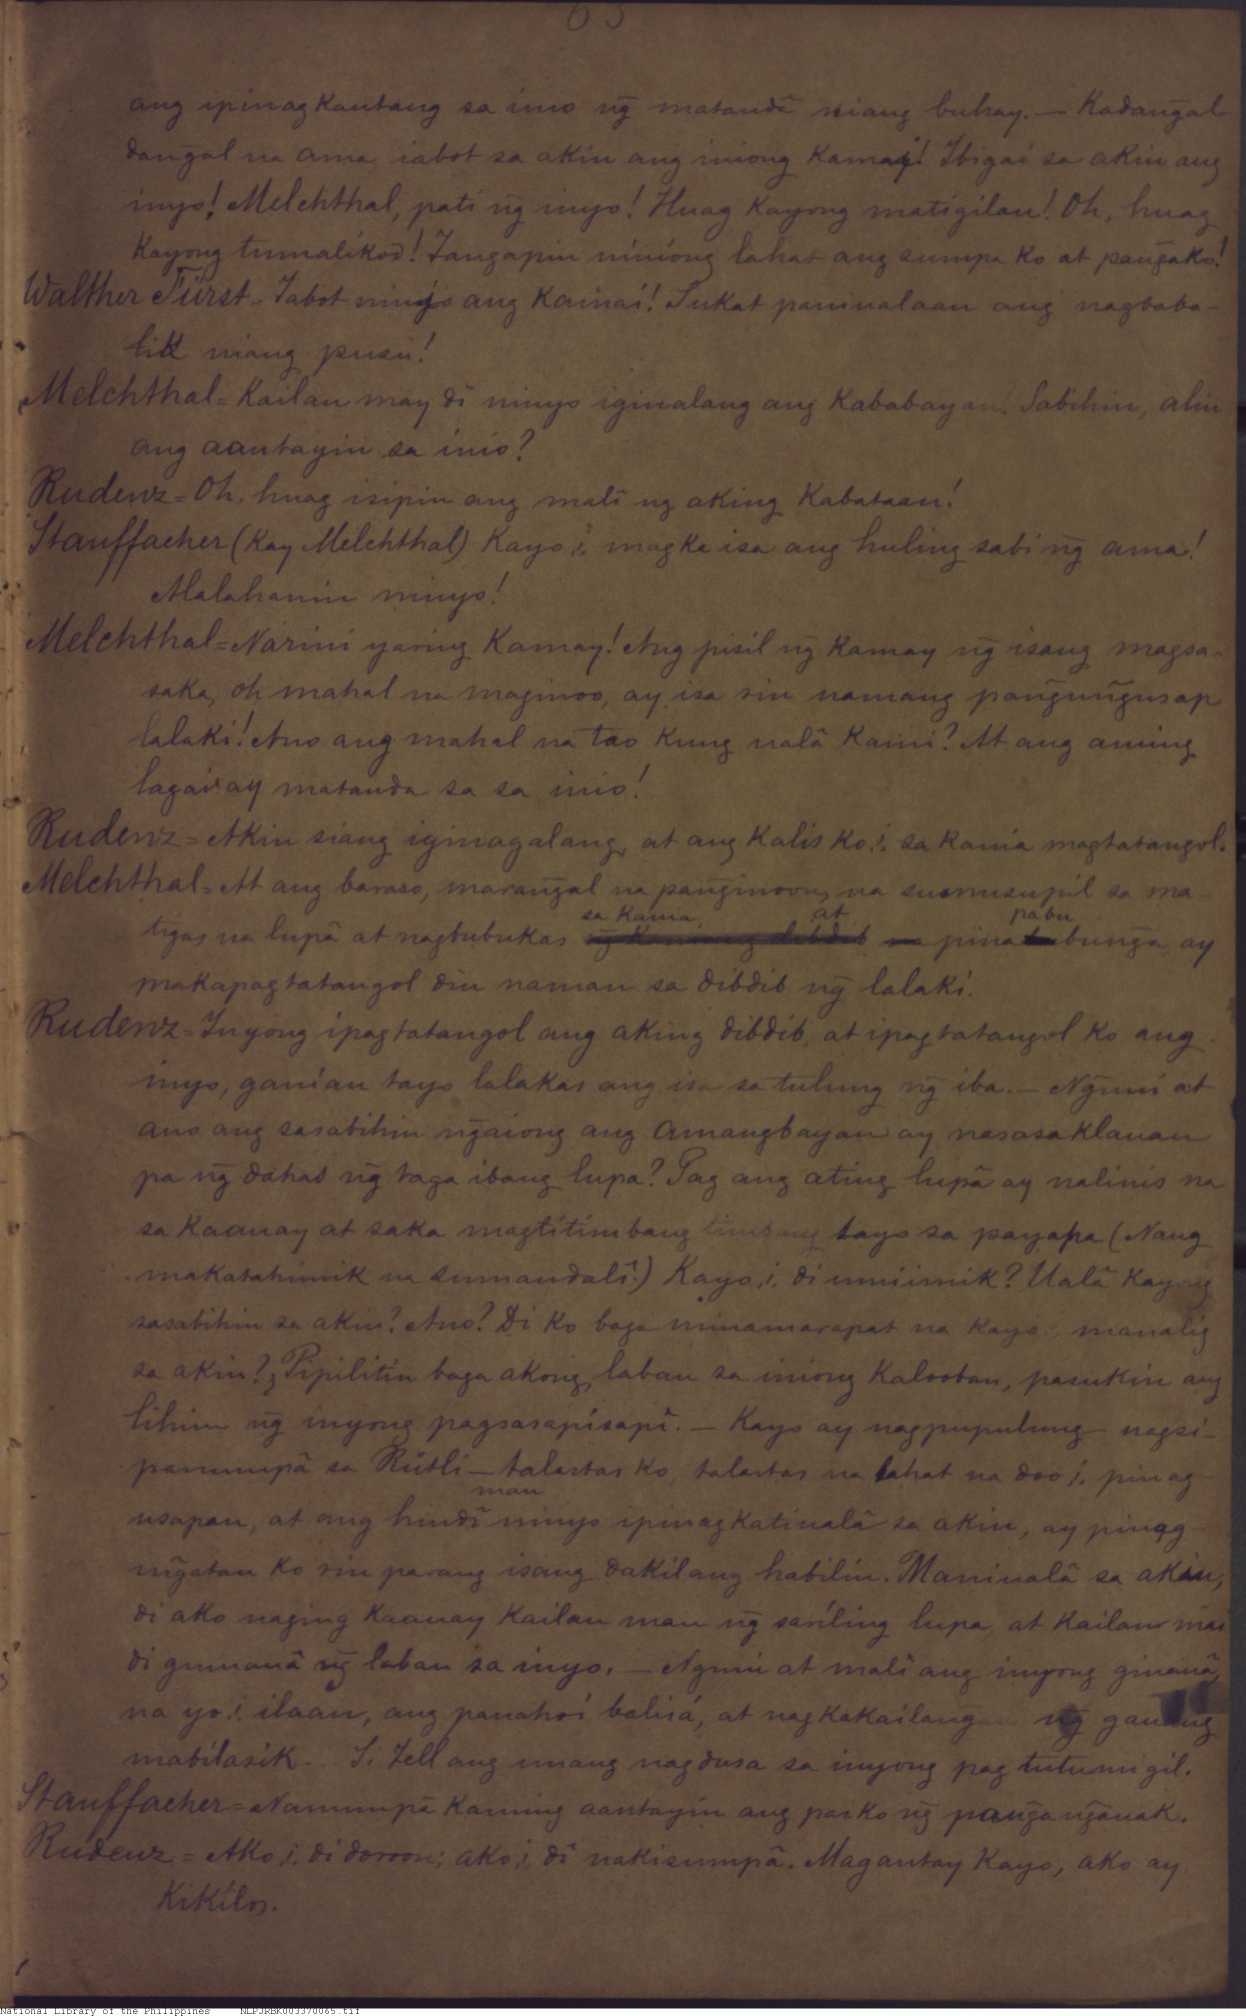 63
ang ipinagkautang sa inio ng̃ matandâ niang buhay. — Kadang̃al
dang̃al na ama iabot sa akin ang iniong kamay! Ibigai sa akin ang
inyo! Melchthal, pati ng̃ inyo! Huag kayong matigilan! Oh, huag
kayong tumalikod! Tangapin niniong lahat ang sumpa ko at pang̃ako!
Walther Fürst = Iabot ninyo ang kamai! Sukat paniualaan ang nagbaba-
lik niang pusu!
Melchthal = Kailan may dî ninyo iginalang ang kababayan. Sabihin, alin
ang aantayin sa inio?
Rudenz = Oh. huag isipin ang malî ng aking kabataan!
Stauffacher (kay Melchthal) Kayo,i, magka isa ang huling sabi ng̃ ama!
Alalahanin ninyo!
Melchthal = Narini yaring kamay! Ang pisil ng̃ kamay ng̃ isang magsa-
saka, oh mahal na maginoo, ay isa rin namang pang̃ung̃usap
lalaki! Ano ang mahal na tao kung ualâ kami? At ang aming
lagai ay matanda sa sa inio!
Rudenz = Akin siang iginagalang, at ang kalis ko,i, sa kania magtatangol.
Melchthal = At ang baraso, marang̃al na pang̃inoon, na sumusupil sa ma-
tigas na lupâ at nagbubukas sa kania, at pinapabubung̃a, ay
makapagtatangol din naman sa dibdib ng̃ lalaki.
Rudenz = Inyong ipagtatangol ang aking dibdib, at ipagtatangol ko ang
inyo, ganian tayo lalakas ang isa sa tulung ng̃ iba. — Ng̃uni at
ano ang sasabihin ng̃aiong ang Amangbayan ay nasasaklauan
pa ng̃ dahas ng̃ taga ibang lupa? Pag ang ating lupâ ay nalinis na
sa kaauay at saka magtitimbang timbang tayo sa payapa (Nang
makatahimik na sumandalî.) Kayo,i, di umiimik? Ualâ kayong
sasabihin sa akin? Ano? Di ko baga minamarapat na kayo manalig
sa akin? Pipilitin baga akong, laban sa iniong kalooban, pasukin ang
lihim ng̃ inyong pagsasapisapî. — Kayo ay nagpupulung — nagsi-
panumpâ sa Rütli — talastas ko, talastas na lahat na doo,i, pinag-
usapan, at ang hindî man ninyo ipinagkatiualâ sa akin, ay pinag-
ing̃atan ko rin parang isang dakilang habilin. Maniualâ sa akin,
di ako naging kaauay kailan man ng̃ sariling lupa, at kailan mai
di gumauâ ng̃ laban sa inyo. — Ng̃uni at malî ang inyong ginauâ,
na yo,i, ilaan, ang panahoi balisá, at nagkakailang ng̃ gauang
mabilasik. Si Tell ang unang nagdusa sa inyong pagtutumigil.
Stauffacher = Nanumpâ kaming aantayin ang pasko ng̃ pang̃ang̃anak.
Rudenz = Ako,i, di doroon; ako,i, dî nakisumpâ. Magantay kayo, ako ay
kikilos.
National Library of the Philippines NLPJRBK003370065.tif